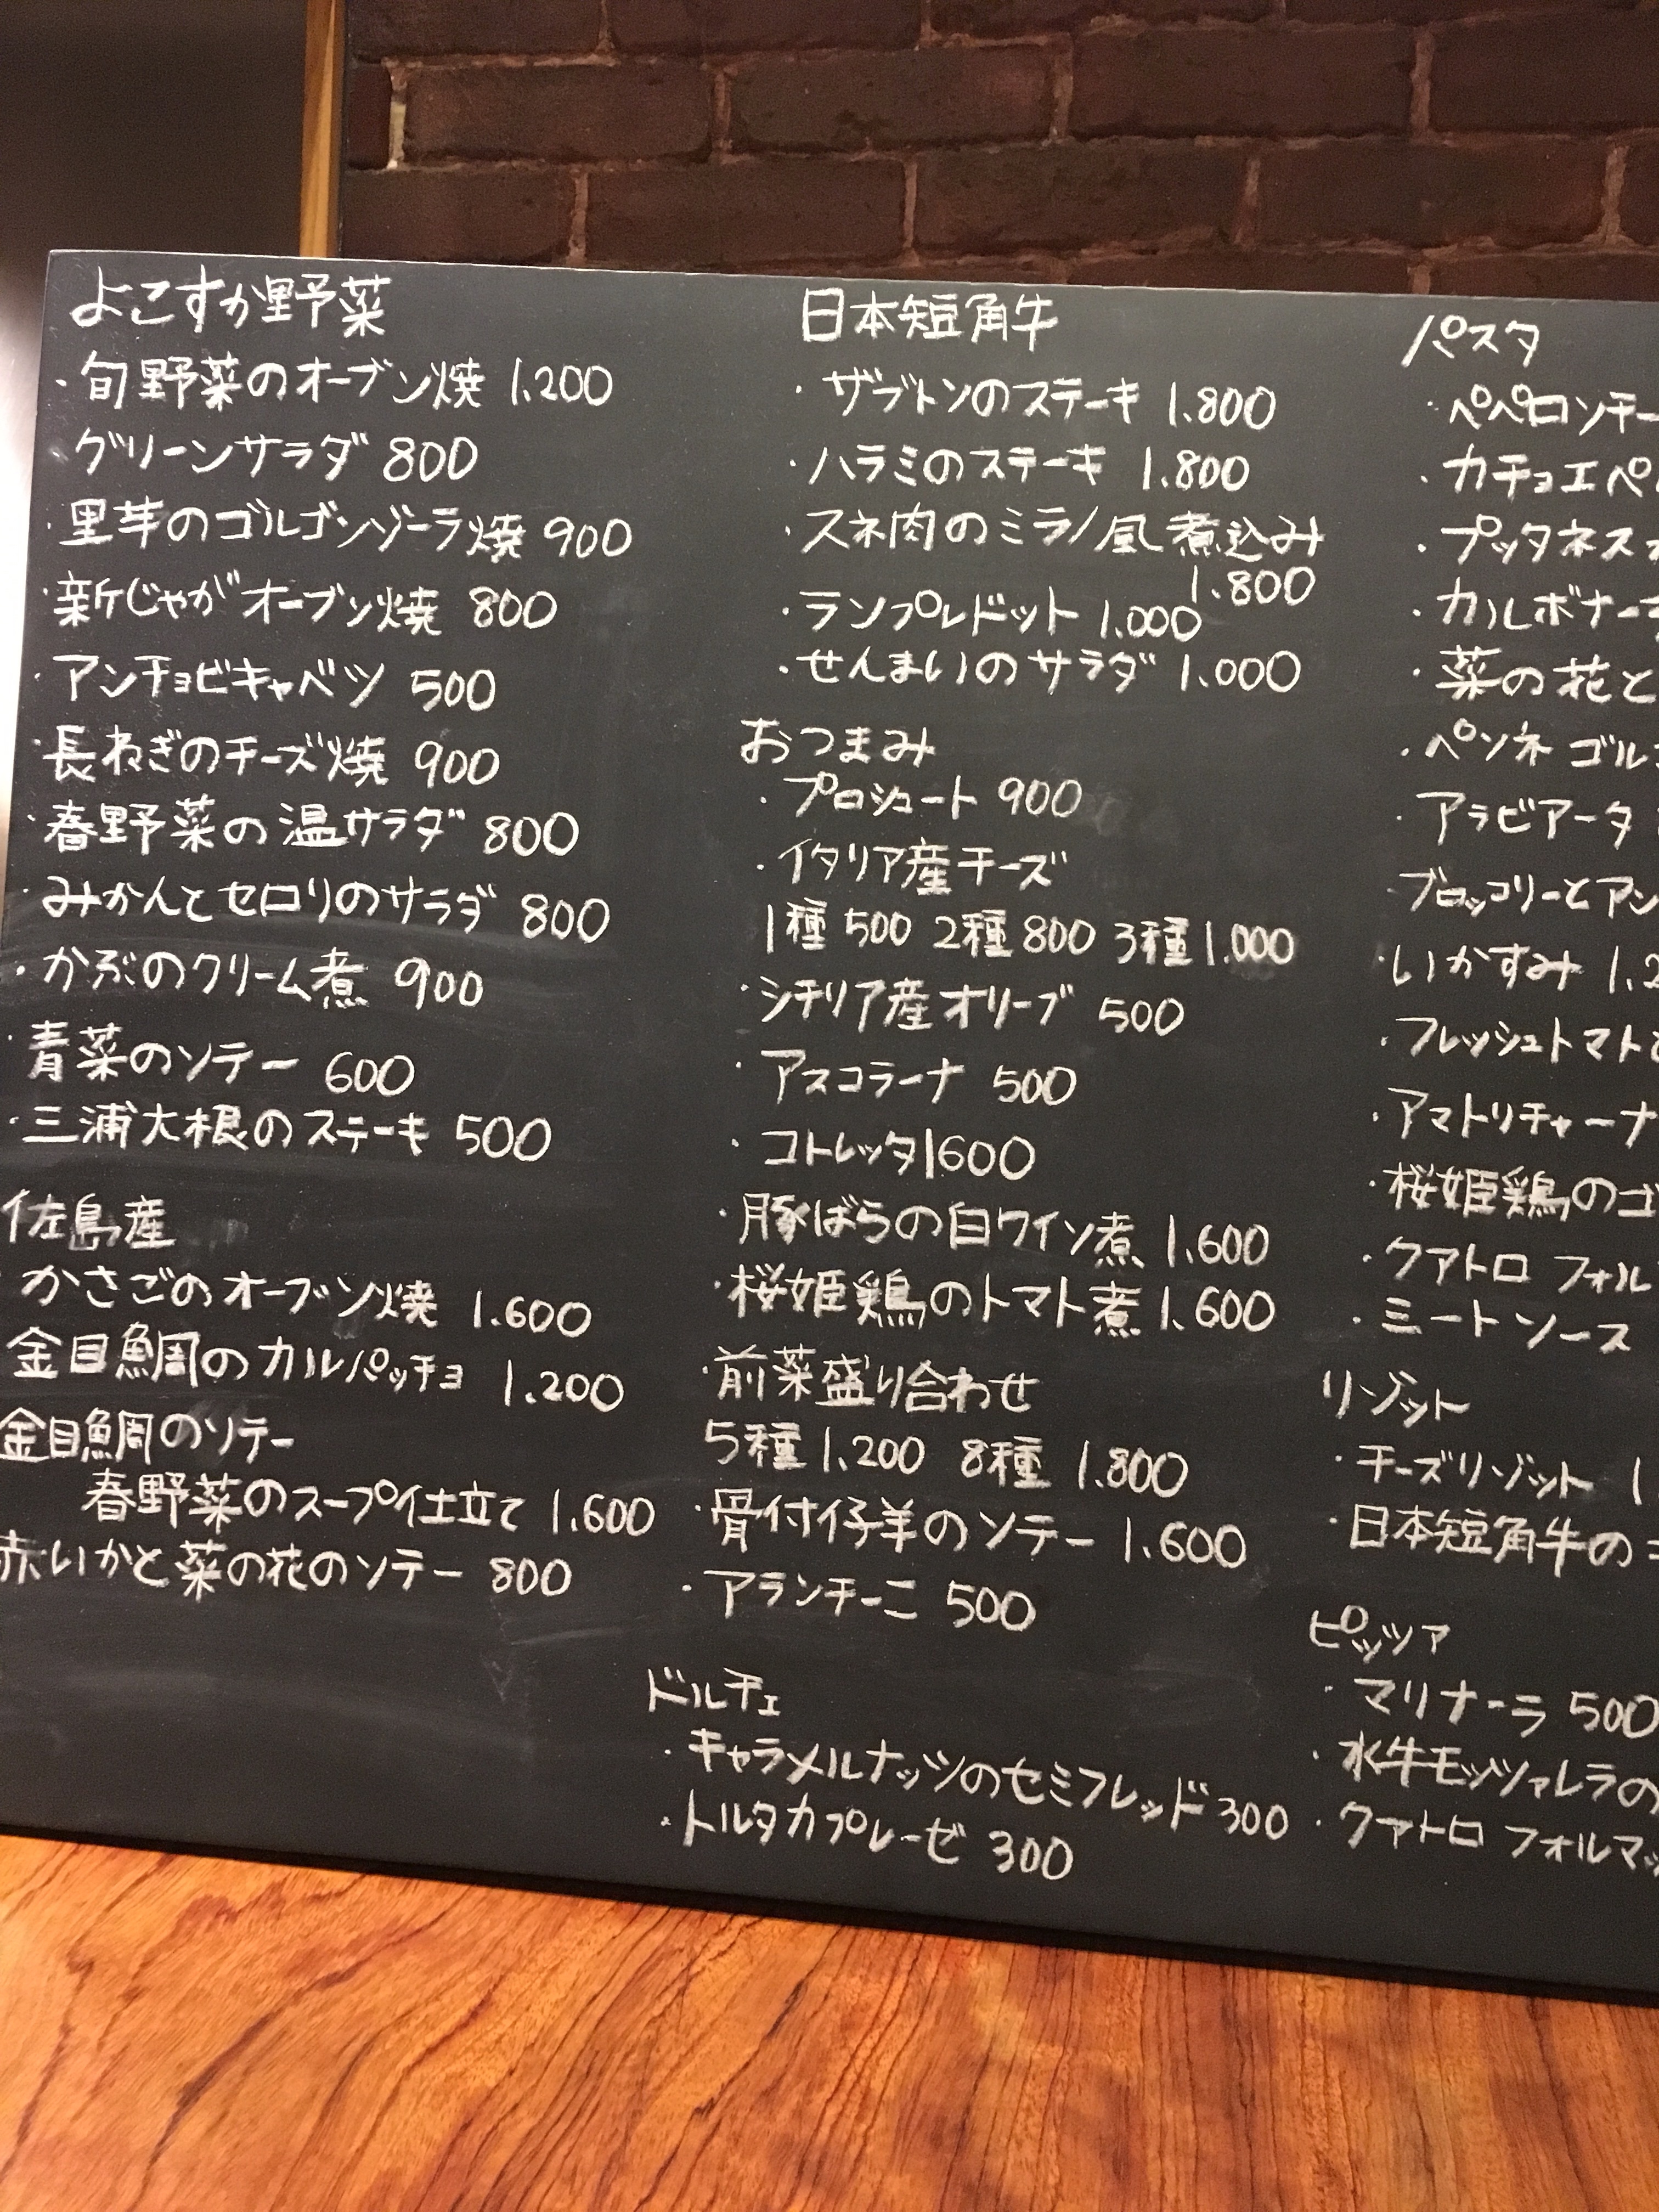 よこすか野菜
・旬野菜のオーブン焼 1.200
グリーンサラダ 800
・里芋のゴルゴンゾーラ焼 900
・新じゃがオーブン焼 800
・アンチョビキャベツ 500
・長ねぎのチーズ焼 900
・春野菜の温サラダ 800
・みかんとセロリのサラダ 800
・かぶのクリーム煮 900
・青菜のソテー 600
・三浦大根のステーキ 500
佐島産
・かさごのオーブン焼 1.600
金目鯛のカルパッチョ 1.200
金目鯛のソテー
春野菜のスープ仕立て 1.600
赤いかと菜の花のソテー 800
日本短角牛
・ザブトンのステーキ 1.800
・ハラミのステーキ 1.800
・スネ肉のミラノ風煮込み
1.800
・ランプレドット 1.000
・せんまいのサラダ 1.000
おつまみ
・プロシュート 900
・イタリア産チーズ
1種 500 2種 800 3種 1.000
・シチリア産オリーブ 500
・アスコラーナ 500
・コトレッタ 1600
・豚ばらの白ワイン煮 1.600
・桜姫鶏のトマト煮 1.600
・前菜盛り合わせ
5種 1.200 8種 1.800
・骨付仔羊のソテー 1.600
・アランチーニ 500
ドルチェ
・キャラメルナッツのセミフレッド 300
・トルタカプレーゼ 300
パスタ
・ペペロンチー
・カチョエペ
・プッタネス
・カルボナー
・菜の花と
・ペンネ ゴル
・アラビアータ
ブロッコリーとアン
・いかすみ 1.2
・フレッシュトマト
・アマトリチャーナ
・桜姫鶏のゴ
・クアトロ フォル
・ミートソース
リゾット
・チーズリゾット 1
・日本短角牛の
ピッツァ
・マリナーラ 500
・水牛モッツァレラの
・クアトロ フォルマッ